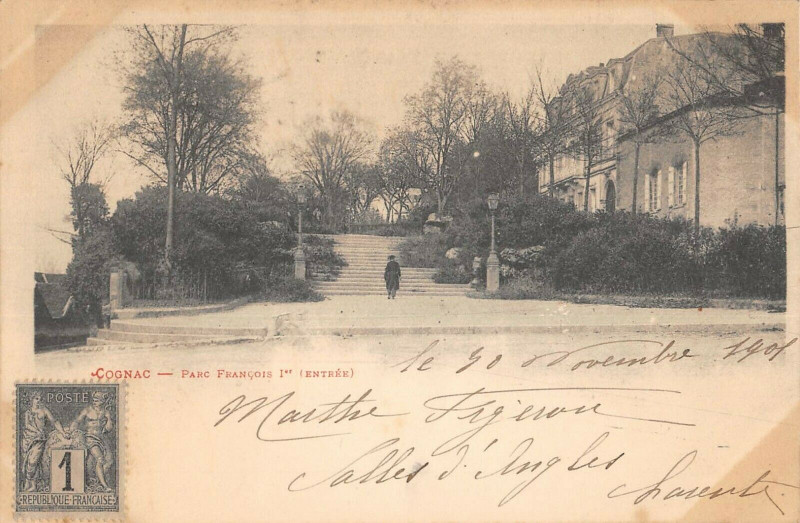 COGNAC — PARC FRANÇOIS Ier (ENTRÉE)
le 30 Novembre 1901
Marthe Figerou
Salles d'Angles
Charente
POSTE
1
RÉPUBLIQUE FRANÇAISE